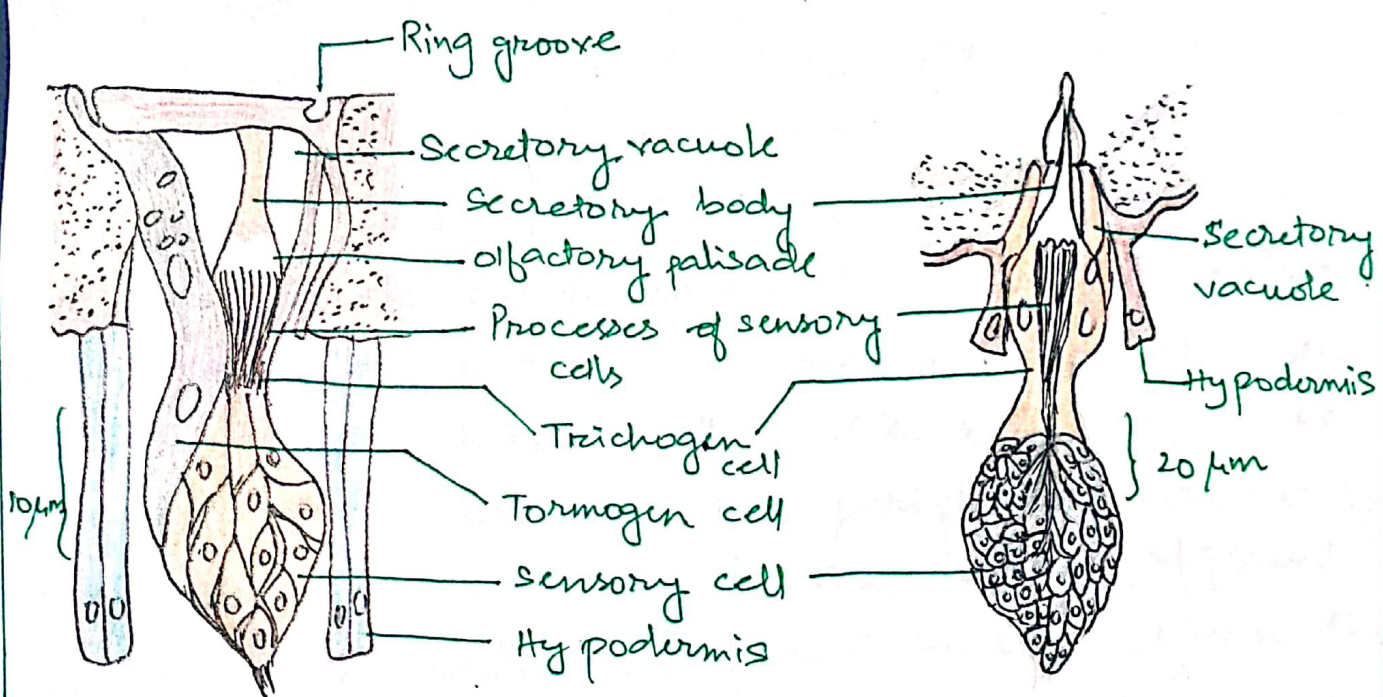 Ring groove
Secretory vacuole
Secretory body
olfactory palisade
Processes of sensory
cells
Trichogen
cell
Tormogen cell
Sensory cell
Hypodermis
10 μm
Secretory
vacuole
Hypodermis
20 μm